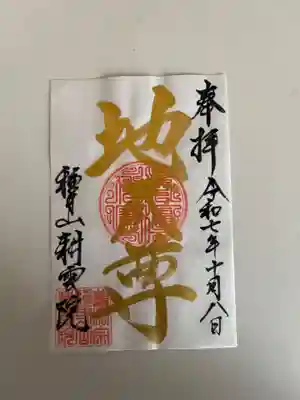 奉拝 令和七年十月八日
地蔵尊
種月山 耕雲院